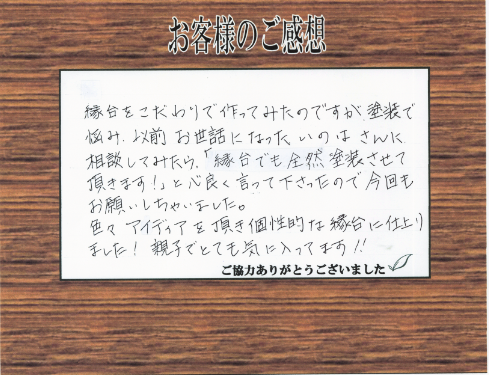 お客様のご感想
縁台をこだわりで作ってみたのですが、塗装で
悩み、以前お世話になったいのはさんに
相談してみたら、「縁台でも全然塗装させて
頂きます！」と心良く言って下さったので今回も
お願いしちゃいました。
色々アイディアを頂き個性的な縁台に仕上り
ました！親子でとても気に入ってます!!
ご協力ありがとうございました